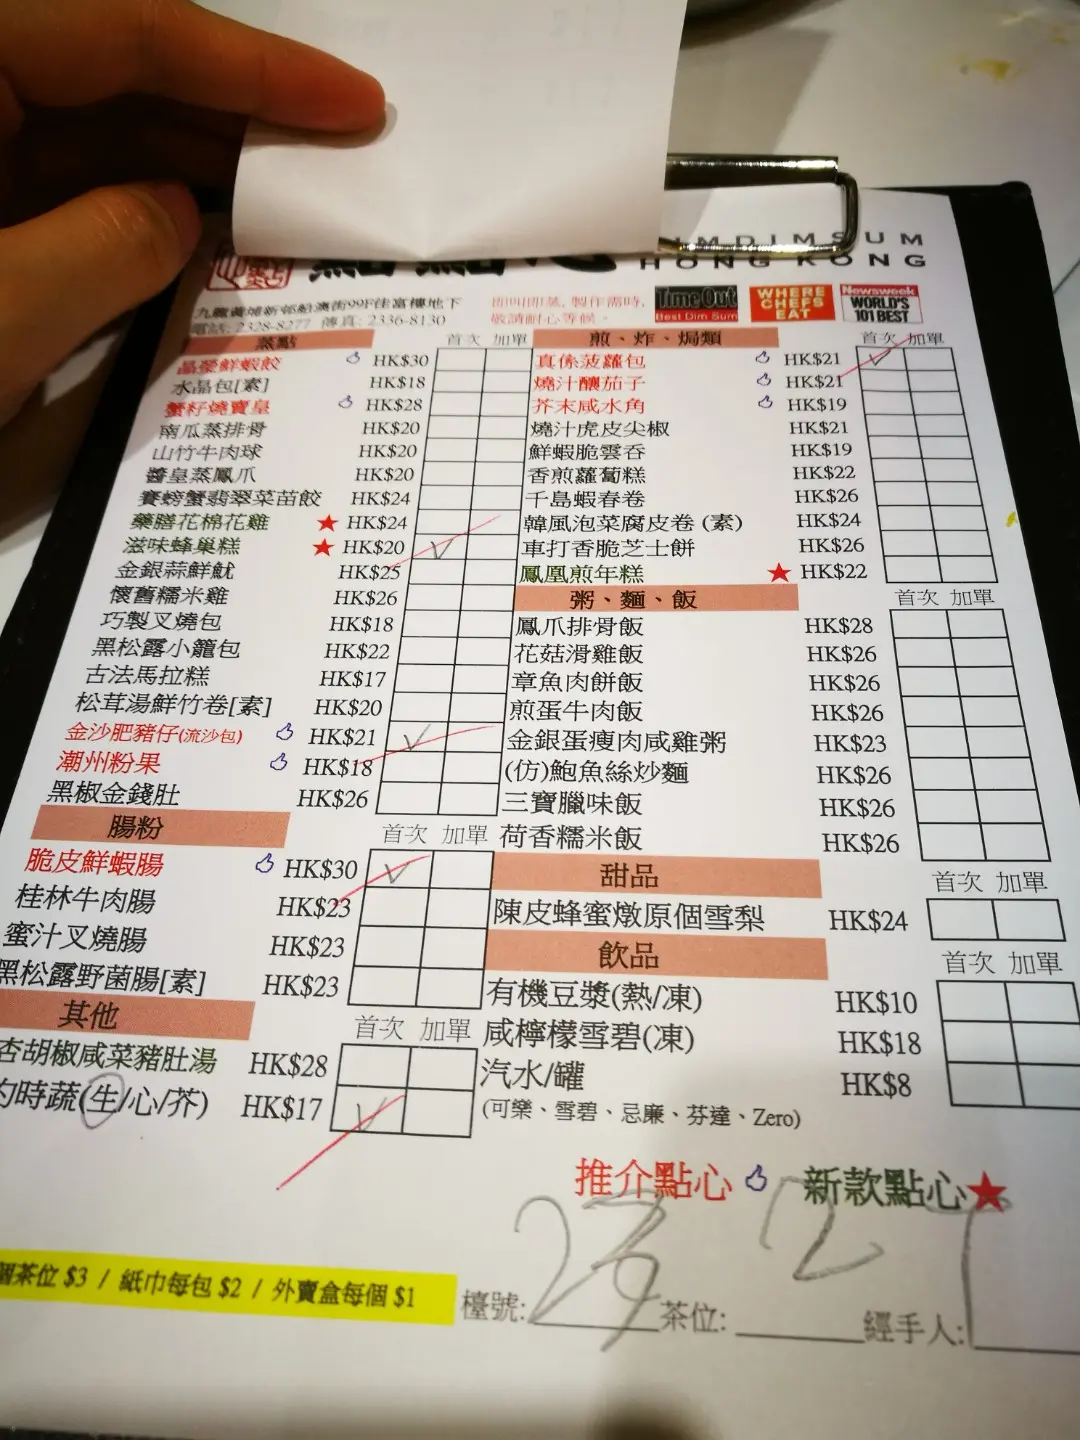 MDIMSUM
HONG KONG
九龍黃埔新邨船澳街99F佳富樓地下
電話: 2328-8277 傳真: 2336-8130
即叫即蒸, 製作需時,
敬請耐心等候。
Time Out
Best Dim Sum
WHERE
CHEFS
EAT
Newsweek
WORLD'S
101 BEST
蒸點 首次 加單
晶瑩鮮蝦餃 HK$30
水晶包[素] HK$18
蟹籽燒賣皇 HK$28
南瓜蒸排骨 HK$20
山竹牛肉球 HK$20
醬皇蒸鳳爪 HK$20
賽螃蟹翡翠菜苗餃 HK$24
藥膳花棉花雞 ★ HK$24
滋味蜂巢糕 ★ HK$20
金銀蒜鮮魷 HK$25
懷舊糯米雞 HK$26
巧製叉燒包 HK$18
黑松露小籠包 HK$22
古法馬拉糕 HK$17
松茸湯鮮竹卷[素] HK$20
金沙肥豬仔(流沙包) HK$21
潮州粉果 HK$18
黑椒金錢肚 HK$26
腸粉 首次 加單
脆皮鮮蝦腸 HK$30
桂林牛肉腸 HK$23
蜜汁叉燒腸 HK$23
黑松露野菌腸[素] HK$23
其他 首次 加單
杏胡椒咸菜豬肚湯 HK$28
灼時蔬(生/心/芥) HK$17
煎、炸、焗類 首次 加單
真係菠蘿包 HK$21
燒汁釀茄子 HK$21
芥末咸水角 HK$19
燒汁虎皮尖椒 HK$21
鮮蝦脆雲吞 HK$19
香煎蘿蔔糕 HK$22
千島蝦春卷 HK$26
韓風泡菜腐皮卷 (素) HK$24
車打香脆芝士餅 HK$26
鳳凰煎年糕 ★ HK$22
粥、麵、飯 首次 加單
鳳爪排骨飯 HK$28
花菇滑雞飯 HK$26
章魚肉餅飯 HK$26
煎蛋牛肉飯 HK$26
金銀蛋瘦肉咸雞粥 HK$23
(仿)鮑魚絲炒麵 HK$26
三寶臘味飯 HK$26
荷香糯米飯 HK$26
甜品 首次 加單
陳皮蜂蜜燉原個雪梨 HK$24
飲品 首次 加單
有機豆漿(熱/凍) HK$10
咸檸檬雪碧(凍) HK$18
汽水/罐 HK$8
(可樂、雪碧、忌廉、芬達、Zero)
推介點心 新款點心★
個茶位 $3 / 紙巾每包 $2 / 外賣盒每個 $1
檯號: 茶位: 2 經手人: